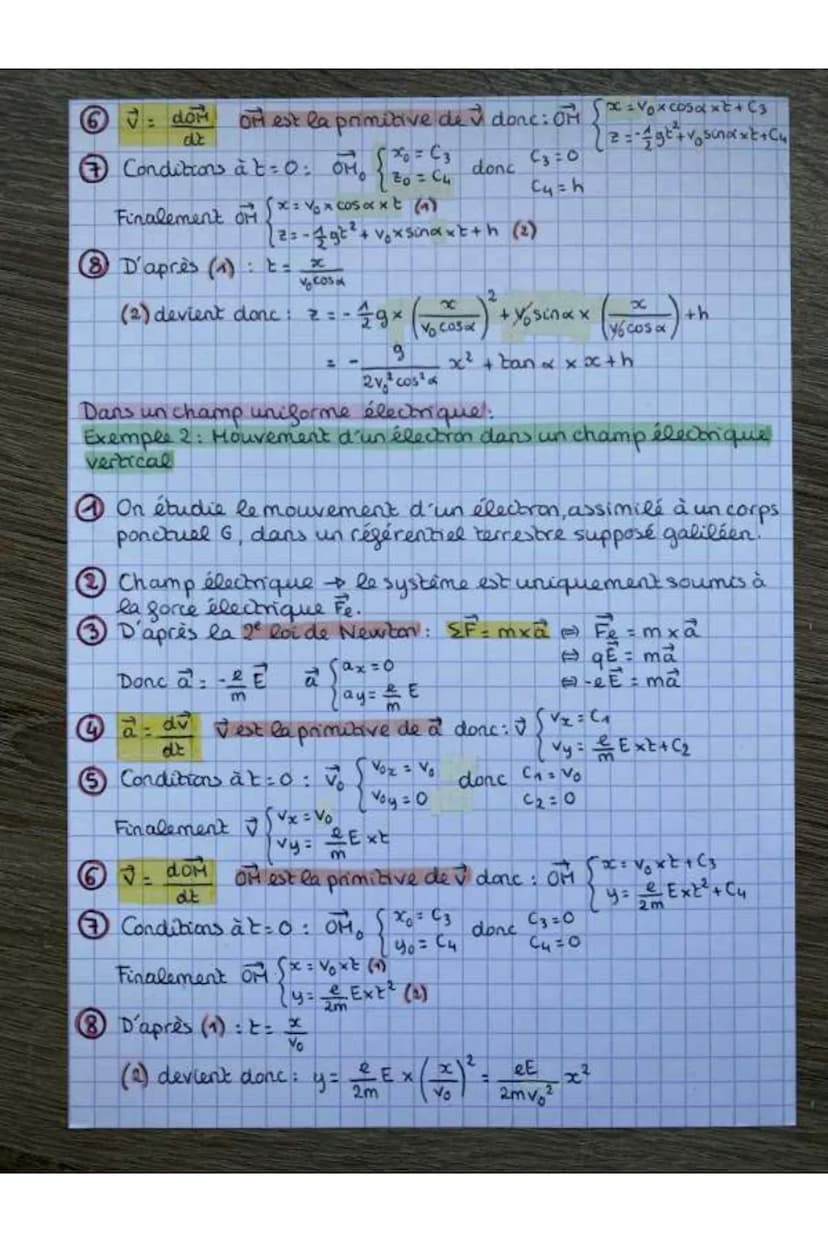 ⑥ v⃗ = dOM⃗/dt OM⃗ est la primitive de v⃗ donc : OM⃗ { x = v₀ × cos α × t + C₃
z = -1/2 gt² + v₀ sin α × t + C₄
⑦ Conditions à t = 0 : OM⃗₀ { x₀ = C₃ donc C₃ = 0
z₀ = C₄ C₄ = h
Finalement OM⃗ { x = v₀ × cos α × t (1)
z = -1/2 gt² + v₀ × sin α × t + h (2)
⑧ D'après (1) : t = x/(v₀ cos α)
(2) devient donc : z = -1/2 g × (x/(v₀ cos α))² + v₀ sin α × (x/(v₀ cos α)) + h
= - g/(2v₀² cos² α) x² + tan α × x + h
Dans un champ uniforme électrique :
Exemple 2 : Mouvement d'un électron dans un champ électrique
vertical
① On étudie le mouvement d'un électron, assimilé à un corps
ponctuel G, dans un référentiel terrestre supposé galiléen.
② Champ électrique → le système est uniquement soumis à
la force électrique F⃗e.
③ D'après la 2ᵉ loi de Newton : ΣF⃗ = m × a⃗ ⇔ F⃗e = m × a⃗
⇔ qE⃗ = ma⃗
Donc a⃗ = -e/m E⃗ a⃗ { ax = 0 ⇔ -eE⃗ = ma⃗
ay = e/m E
④ a⃗ = dv⃗/dt v⃗ est la primitive de a⃗ donc : v⃗ { vx = C₁
vy = e/m E × t + C₂
⑤ Conditions à t = 0 : v⃗₀ { v₀x = v₀ donc C₁ = v₀
v₀y = 0 C₂ = 0
Finalement v⃗ { vx = v₀
vy = e/m E × t
⑥ v⃗ = dOM⃗/dt OM⃗ est la primitive de v⃗ donc : OM⃗ { x = v₀ × t + C₃
y = e/2m E × t² + C₄
⑦ Conditions à t = 0 : OM⃗₀ { x₀ = C₃ donc C₃ = 0
y₀ = C₄ C₄ = 0
Finalement OM⃗ { x = v₀ × t (1)
y = e/2m E × t² (2)
⑧ D'après (1) : t = x/v₀
(2) devient donc : y = e/2m E × (x/v₀)² = eE/(2mv₀²) x²